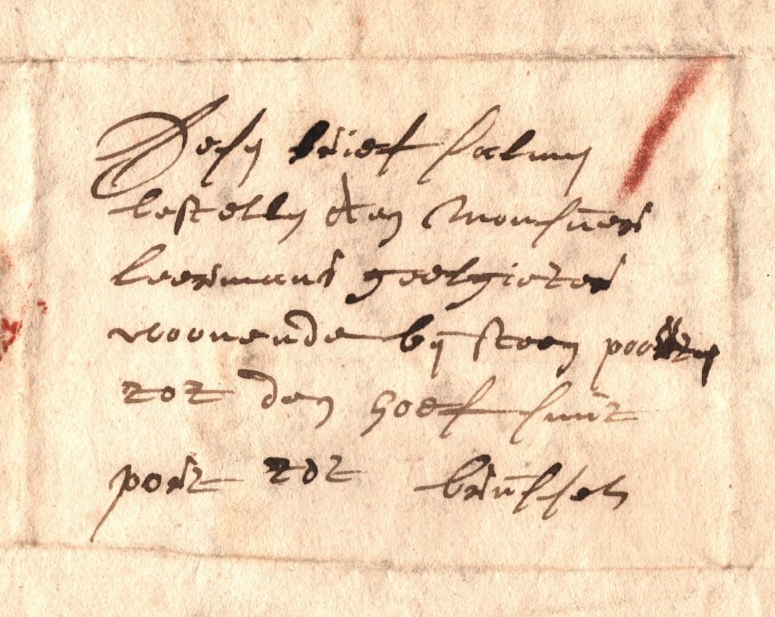 Desen brief salmen
bestellen aen Monsuer
leermans geelgieter
woonende bij steen poorten
tot den hoef
port tot brussel